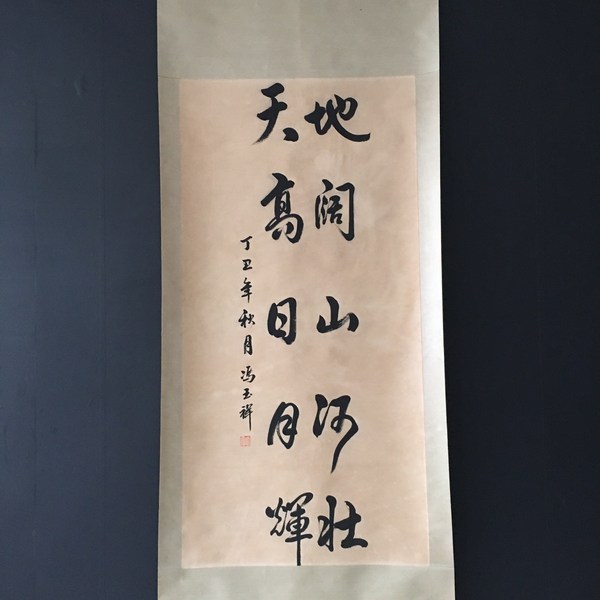 地阔山河壮
天高日月輝
丁丑年秋月冯玉祥